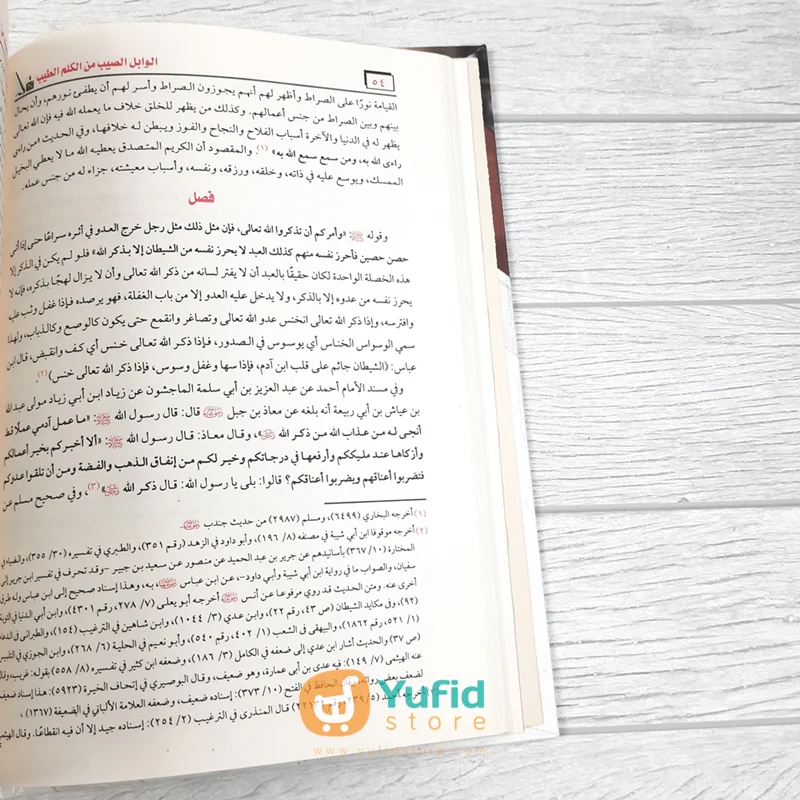 الوابل الصيب من الكلم الطيب
٥٤
القيامة نورًا على الصراط وأظهر لهم أنهم يجوزون الصراط وأسر لهم أن يطفئ نورهم، وأن يحال
بينهم وبين الصراط من جنس أعمالهم. وكذلك من يظهر للخلق خلاف ما يعمله الله فيه فإن الله تعالى
يظهر له في الدنيا والآخرة أسباب الفلاح والنجاح والفوز ويبطن له خلافها، وفي الحديث «من راءى
راءى الله به، ومن سمع سمع الله به» (١). والمقصود أن الكريم المتصدق يعطيه الله ما لا يعطي البخيل
الممسك، ويوسع عليه في ذاته، وخلقه، ورزقه، ونفسه، وأسباب معيشته، جزاء له من جنس عمله.
فصل
وقوله ﷺ: «وأمركم أن تذكروا الله تعالى، فإن مثل ذلك مثل رجل خرج العدو في أثره سراعًا حتى إذا أتى
حصن حصين فأحرز نفسه منهم كذلك العبد لا يحرز نفسه من الشيطان إلا بذكر الله» فلو لم يكن في الذكر إلا
هذه الخصلة الواحدة لكان حقيقًا بالعبد أن لا يفتر لسانه من ذكر الله تعالى وأن لا يزال لهجًا بذكره، فإنه لا
يحرز نفسه من عدوه إلا بالذكر، ولا يدخل عليه العدو إلا من باب الغفلة، فهو يرصده فإذا غفل وثب عليه
وافترسه، وإذا ذكر الله تعالى انخنس عدو الله تعالى وتصاغر وانقمع حتى يكون كالوصع وكالذباب، ولهذا
سمي الوسواس الخناس أي يوسوس في الصدور، فإذا ذكر الله تعالى خنس أي كف وانقبض، قال ابن
عباس: (الشيطان جاثم على قلب ابن آدم، فإذا سها وغفل وسوس، فإذا ذكر الله تعالى خنس) (٢).
وفي مسند الأمام أحمد عن عبد العزيز بن أبي سلمة الماجشون عن زياد ابن أبي زياد مولى عبد الله
بن عياش بن أبي ربيعة أنه بلغه عن معاذ بن جبل رضي الله عنه قال: قال رسول الله ﷺ: «ما عمل آدمي عملا قط
أنجى له من عذاب الله من ذكر الله»، وقال معاذ: قال رسول الله ﷺ: «ألا أخبركم بخير أعمالكم
وأزكاها عند مليككم وأرفعها في درجاتكم وخير لكم من إنفاق الذهب والفضة ومن أن تلقوا عدوكم
فتضربوا أعناقهم ويضربوا أعناقكم؟ قالوا: بلى يا رسول الله: قال ذكر الله» (٣)، وفي صحيح مسلم عن
(١) أخرجه البخاري (٦٤٩٩)، ومسلم (٢٩٨٧) من حديث جندب رضي الله عنه.
(٢) أخرجه موقوفا ابن أبي شيبة في مصنفه (٨/ ١٩٦)، وأبو داود في الزهد (رقم ٣٥١)، والطبري في تفسيره (٣٠/ ٣٥٥)، والضياء في
المختارة (١٠/ ٣٦٧) بأسانيدهم عن جرير بن عبد الحميد عن منصور عن سعيد بن جبير -وقد تحرف في تفسير ابن جرير إلى
سفيان، والصواب ما في رواية ابن أبي شيبة وأبي داود-، عن ابن عباس به، وهذا إسناد صحيح إلى ابن عباس وله طرق
أخرى عنه. ومتن الحديث قد روي مرفوعا عن أنس أخرجه أبو يعلى (٧/ ٢٧٨، رقم ٤٣٠١)، وابن أبي الدنيا في التوبة
(٩٢)، وفي مكايد الشيطان (ص ٤٣، رقم ٢٢)، وابن عدي (٣/ ١٠٤٤)، وابن شاهين في الترغيب (١٥٤)، والطبراني في الدعاء
(١/ ٥٢١، رقم ١٨٦٢)، والبيهقى فى الشعب (١/ ٤٠٢، رقم ٥٤٠)، وأبو نعيم في الحلية (٦/ ٢٦٨)، وابن الجوزي في التلبيس
(ص ٣٧) والحديث أشار ابن عدي إلى ضعفه في الكامل (٣/ ١٨٦)، وضعفه ابن كثير في تفسيره (٨/ ٥٥٨) بقوله: غريب، وقال
عنه الهيثمي (٧/ ١٤٩): فيه عدي بن أبي عمارة، وهو ضعيف، وقال البوصيري في إتحاف الخيرة (٥٩٢٣): هذا إسناد ضعيف
لضعف بعض رواته، وقال الحافظ في الفتح (١٠/ ٣٧٣): إسناده ضعيف، وضعفه العلامة الألباني في الضعيفة (١٣٦٧)
أخرجه أحمد (٥/ ٢٣٩ قال المنذرى في الترغيب (٢/ ٢٥٤): إسناده جيد إلا أن فيه انقطاعًا. وقال الهيثمي
Yufid
store
www.yufidstore.com